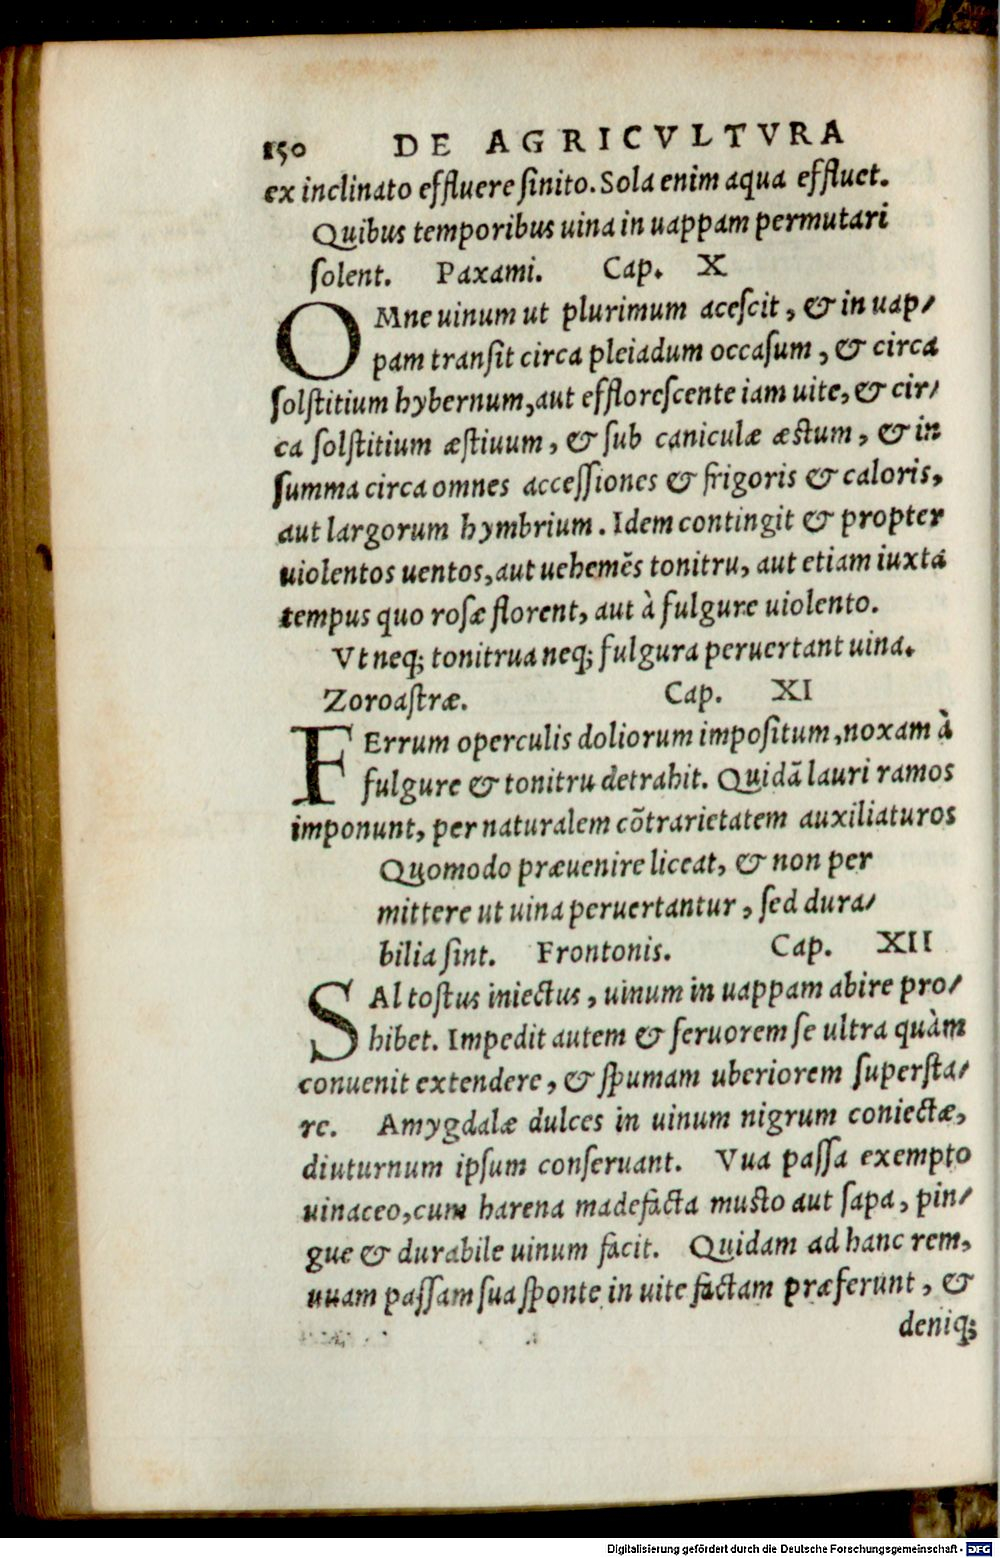 150 DE AGRICVLTVRA
ex inclinato effluere ſinito. Sola enim aqua effluet.
Quibus temporibus uina in uappam permutari
ſolent. Paxami. Cap. X
OMne uinum ut plurimum aceſcit, & in uap/
pam tranſit circa pleiadum occaſum, & circa
ſolſtitium hybernum, aut effloreſcente iam uite, & cir/
ca ſolſtitium æſtiuum, & ſub caniculæ æſtum, & in
ſumma circa omnes acceſſiones & frigoris & caloris,
aut largorum hymbrium. Idem contingit & propter
uiolentos uentos, aut uehemẽs tonitru, aut etiam iuxta
tempus quo roſæ florent, aut à fulgure uiolento.
Vt neq; tonitrua neq; fulgura peruertant uina.
Zoroaſtræ. Cap. XI
FErrum operculis doliorum impoſitum, noxam à
fulgure & tonitru detrahit. Quidã lauri ramos
imponunt, per naturalem cõtrarietatem auxiliaturos
Quomodo præuenire liceat, & non per
mittere ut uina peruertantur, ſed dura/
bilia ſint. Frontonis. Cap. XII
SAl toſtus iniectus, uinum in uappam abire pro/
hibet. Impedit autem & feruorem ſe ultra quàm
conuenit extendere, & ſpumam uberiorem ſuperſta/
re. Amygdalæ dulces in uinum nigrum coniectæ,
diuturnum ipſum conſeruant. Vua paſſa exempto
uinaceo, cum harena madefacta muſto aut ſapa, pin/
gue & durabile uinum facit. Quidam ad hanc rem,
uuam paſſam ſua ſponte in uite factam præferunt, &
deniq;
Digitalisierung gefördert durch die Deutsche Forschungsgemeinschaft - DFG